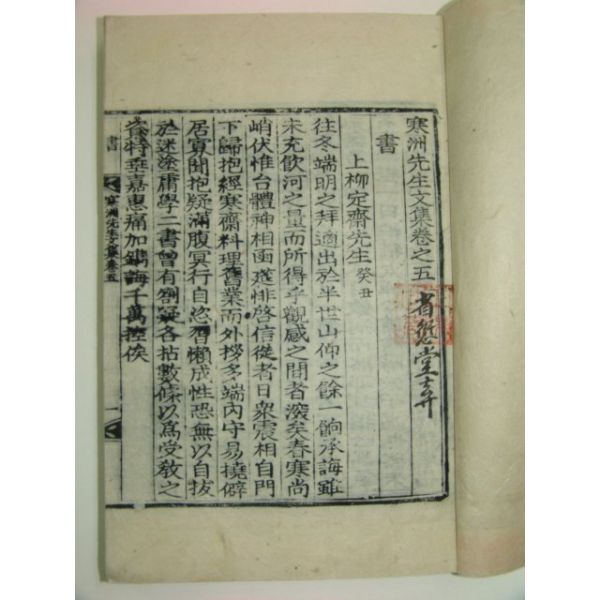 寒洲先生文集卷之五
省愆堂
書
上柳定齋先生 癸丑
往冬端明之拜適出於半世山仰之餘一餉承誨雖
未充飮河之量而所得乎觀感之間者深矣春寒尙
峭伏惟台體神相函筵排啓信從者日衆震相自門
下歸抱經寒齋料理舊業而外拶多端內守易撓僻
居寡聞抱疑滿腹冥行自恣習懶成性恐無以自拔
於迷塗庸學二書曾有劄疑各拈數條以爲受敎之
資特垂嘉惠痛加鐫誨千萬控俟
書
寒洲先生文集卷五
一